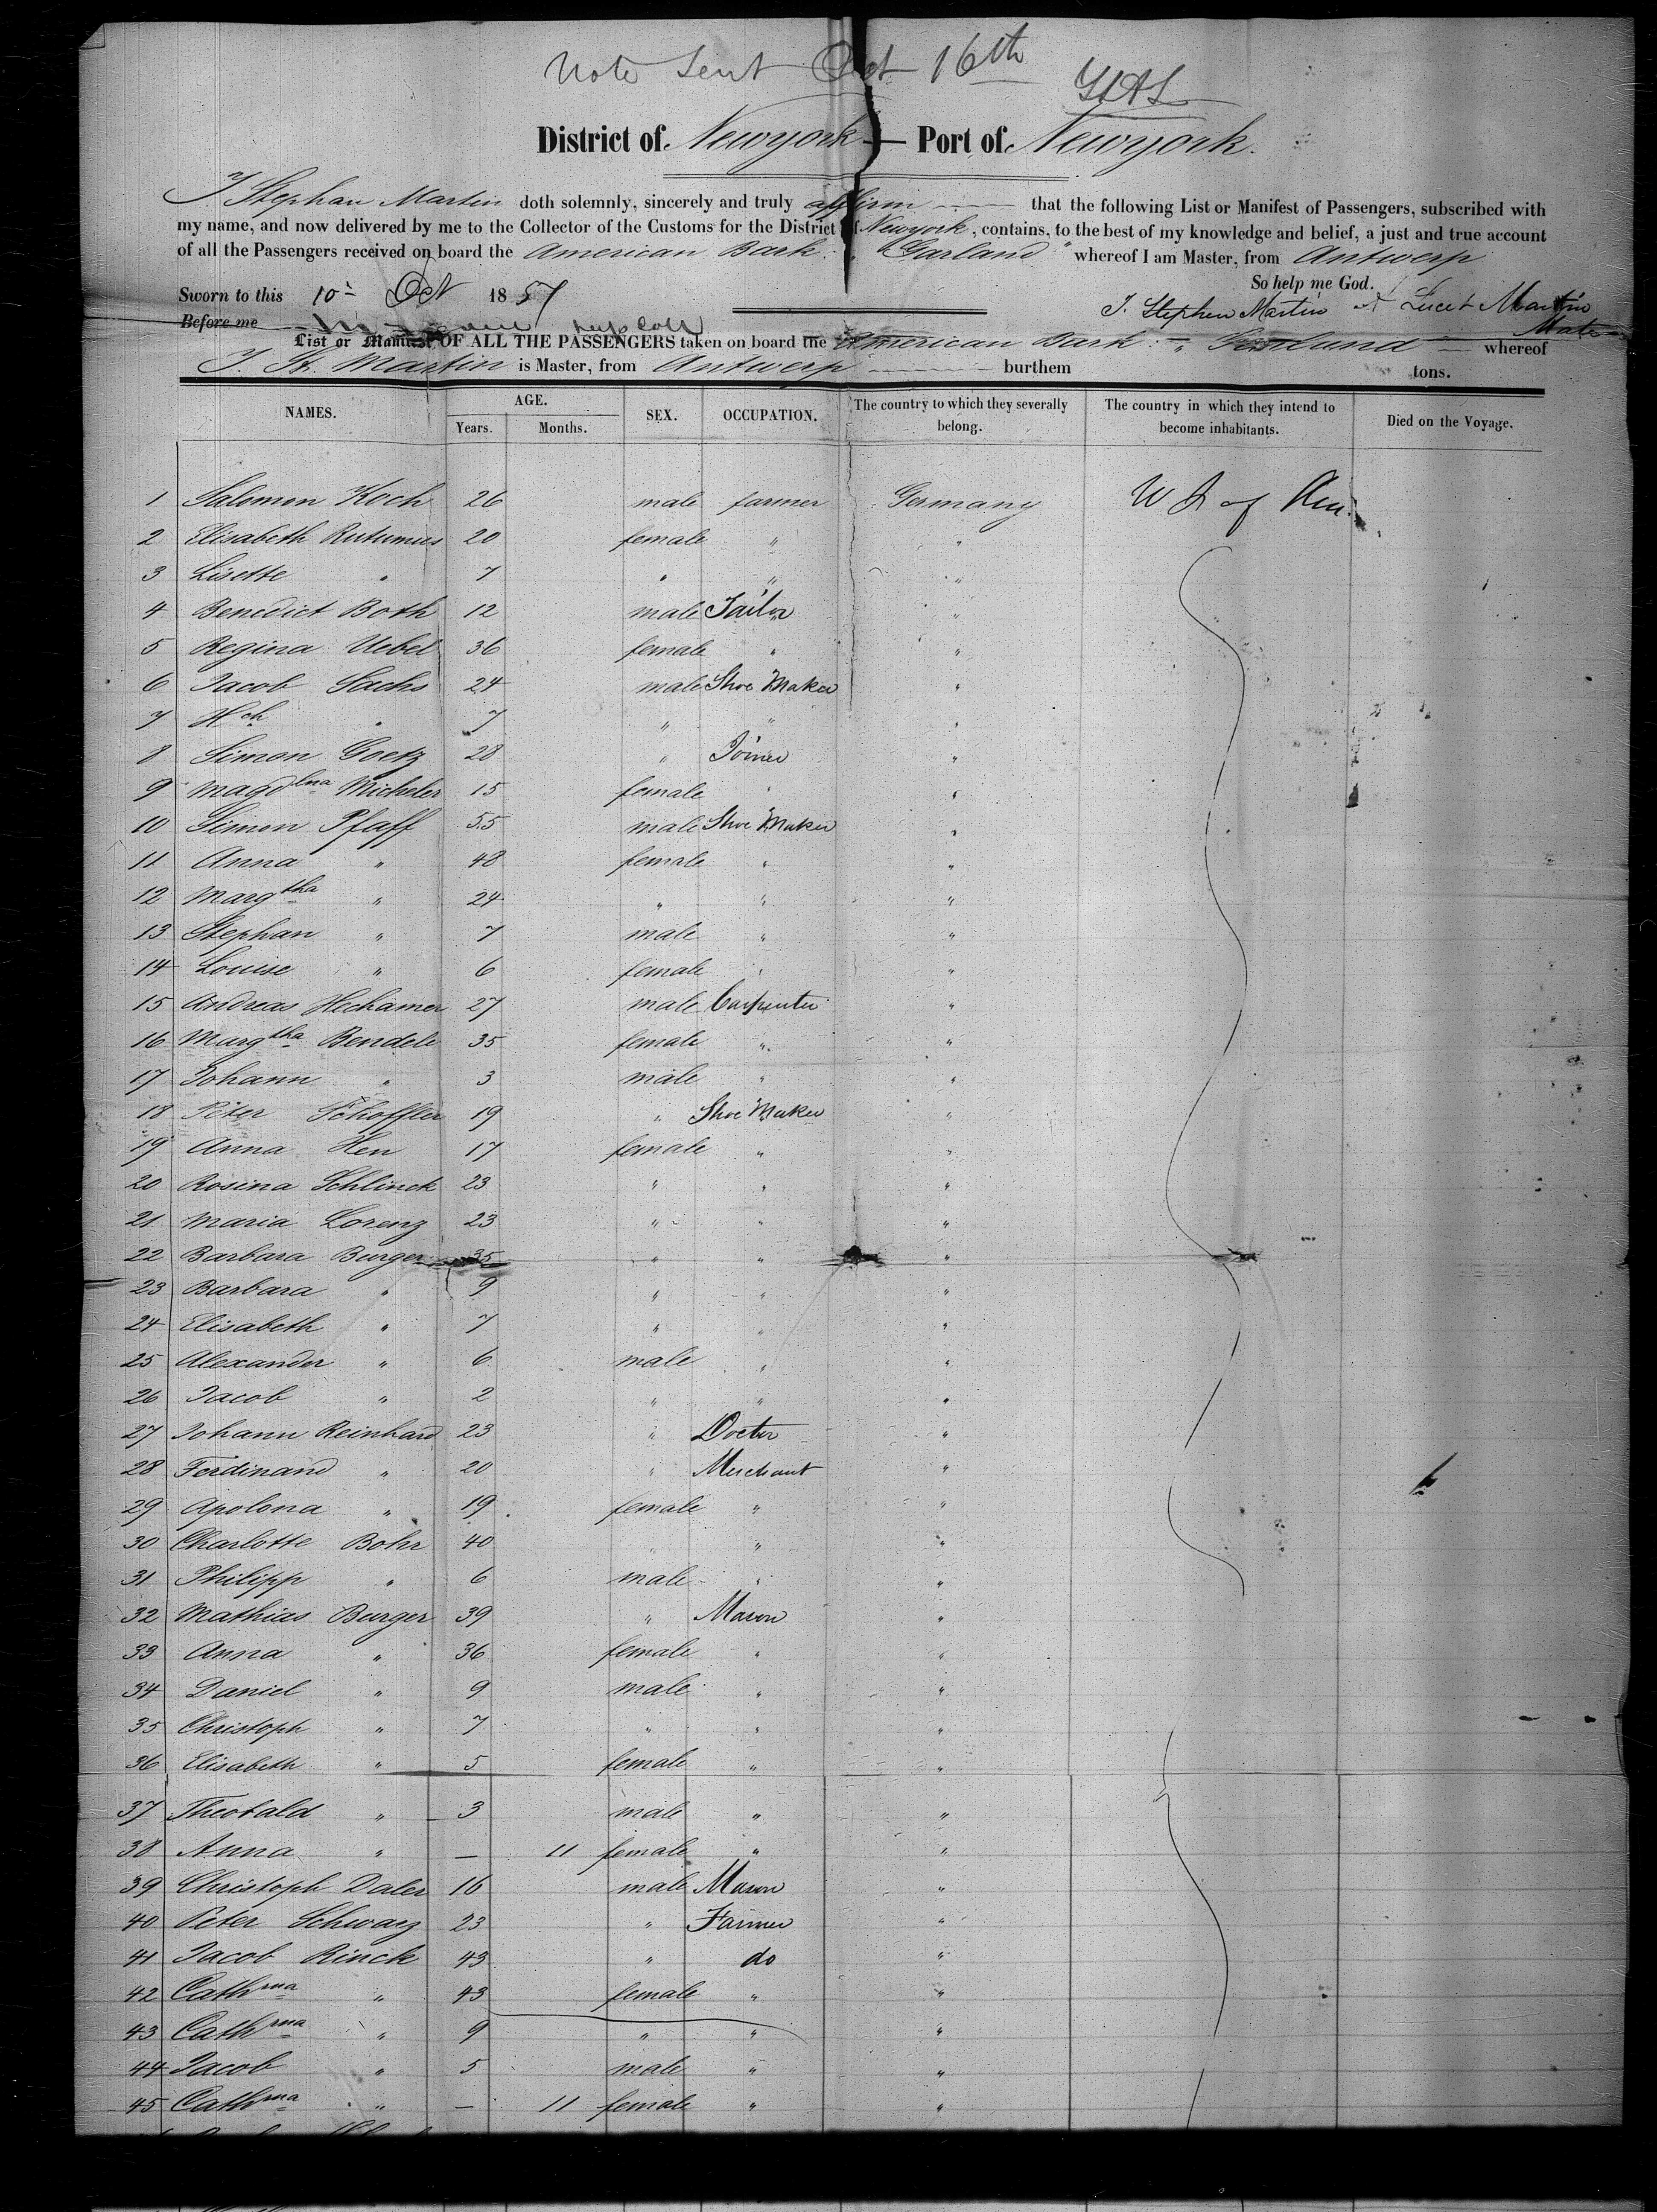 Note Sent Oct 16th
District of Newyork — Port of Newyork.
I Stephan Martin doth solemnly, sincerely and truly affirm that the following List or Manifest of Passengers, subscribed with
my name, and now delivered by me to the Collector of the Customs for the District of Newyork, contains, to the best of my knowledge and belief, a just and true account
of all the Passengers received on board the American Bark "Garland" whereof I am Master, from Antwerp
So help me God.
Sworn to this 10th Oct 1857 J. Stephen Martin
Before me Martin Mate
List or Manifest OF ALL THE PASSENGERS taken on board the American Bark " Garland whereof
J. St. Martin is Master, from Antwerp burthem tons.
NAMES. AGE. Years. Months. SEX. OCCUPATION. The country to which they severally belong. The country in which they intend to become inhabitants. Died on the Voyage.
1 Salomon Koch 26 male farmer Germany U S of Am.
2 Elisabeth Rutumus 20 female " "
3 Lisette " 7 " " "
4 Benedict Both 12 male Tailor "
5 Regina Uebel 36 female " "
6 Jacob Sachs 24 male Shoe Maker "
7 Hch " 7 " " "
8 Simon Goetz 28 " Joiner "
9 Magdlna Micheler 15 female " "
10 Simon Pfaff 55 male Shoe Maker "
11 Anna " 48 female " "
12 Margtha " 24 " " "
13 Stephan " 7 male " "
14 Louise " 6 female " "
15 Andreas Hechamer 27 male Carpenter "
16 Margtha Bendele 35 female " "
17 Johann " 3 male " "
18 Peter Schoffler 19 " Shoe Maker "
19 Anna Hen 17 female " "
20 Rosina Schlinck 23 " " "
21 Maria Lorenz 23 " " "
22 Barbara Burger 35 " " "
23 Barbara " 9 " " "
24 Elisabeth " 7 " " "
25 Alexander " 6 male " "
26 Jacob " 2 " " "
27 Johann Reinhard 23 " Doctor "
28 Ferdinand " 20 " Merchant "
29 Apolona " 19 female " "
30 Charlotte Bohr 40 " " "
31 Philipp " 6 male " "
32 Mathias Burger 39 " Mason "
33 Anna " 36 female " "
34 Daniel " 9 male " "
35 Christoph " 7 " " "
36 Elisabeth " 5 female " "
37 Theobald " 3 male " "
38 Anna " — 11 female " "
39 Christoph Daler 16 male Mason "
40 Peter Schwarz 23 " Farmer "
41 Jacob Rinck 43 " do "
42 Cathrna " 43 female " "
43 Cathrna " 9 " " "
44 Jacob " 5 male " "
45 Cathrna " — 11 female " "